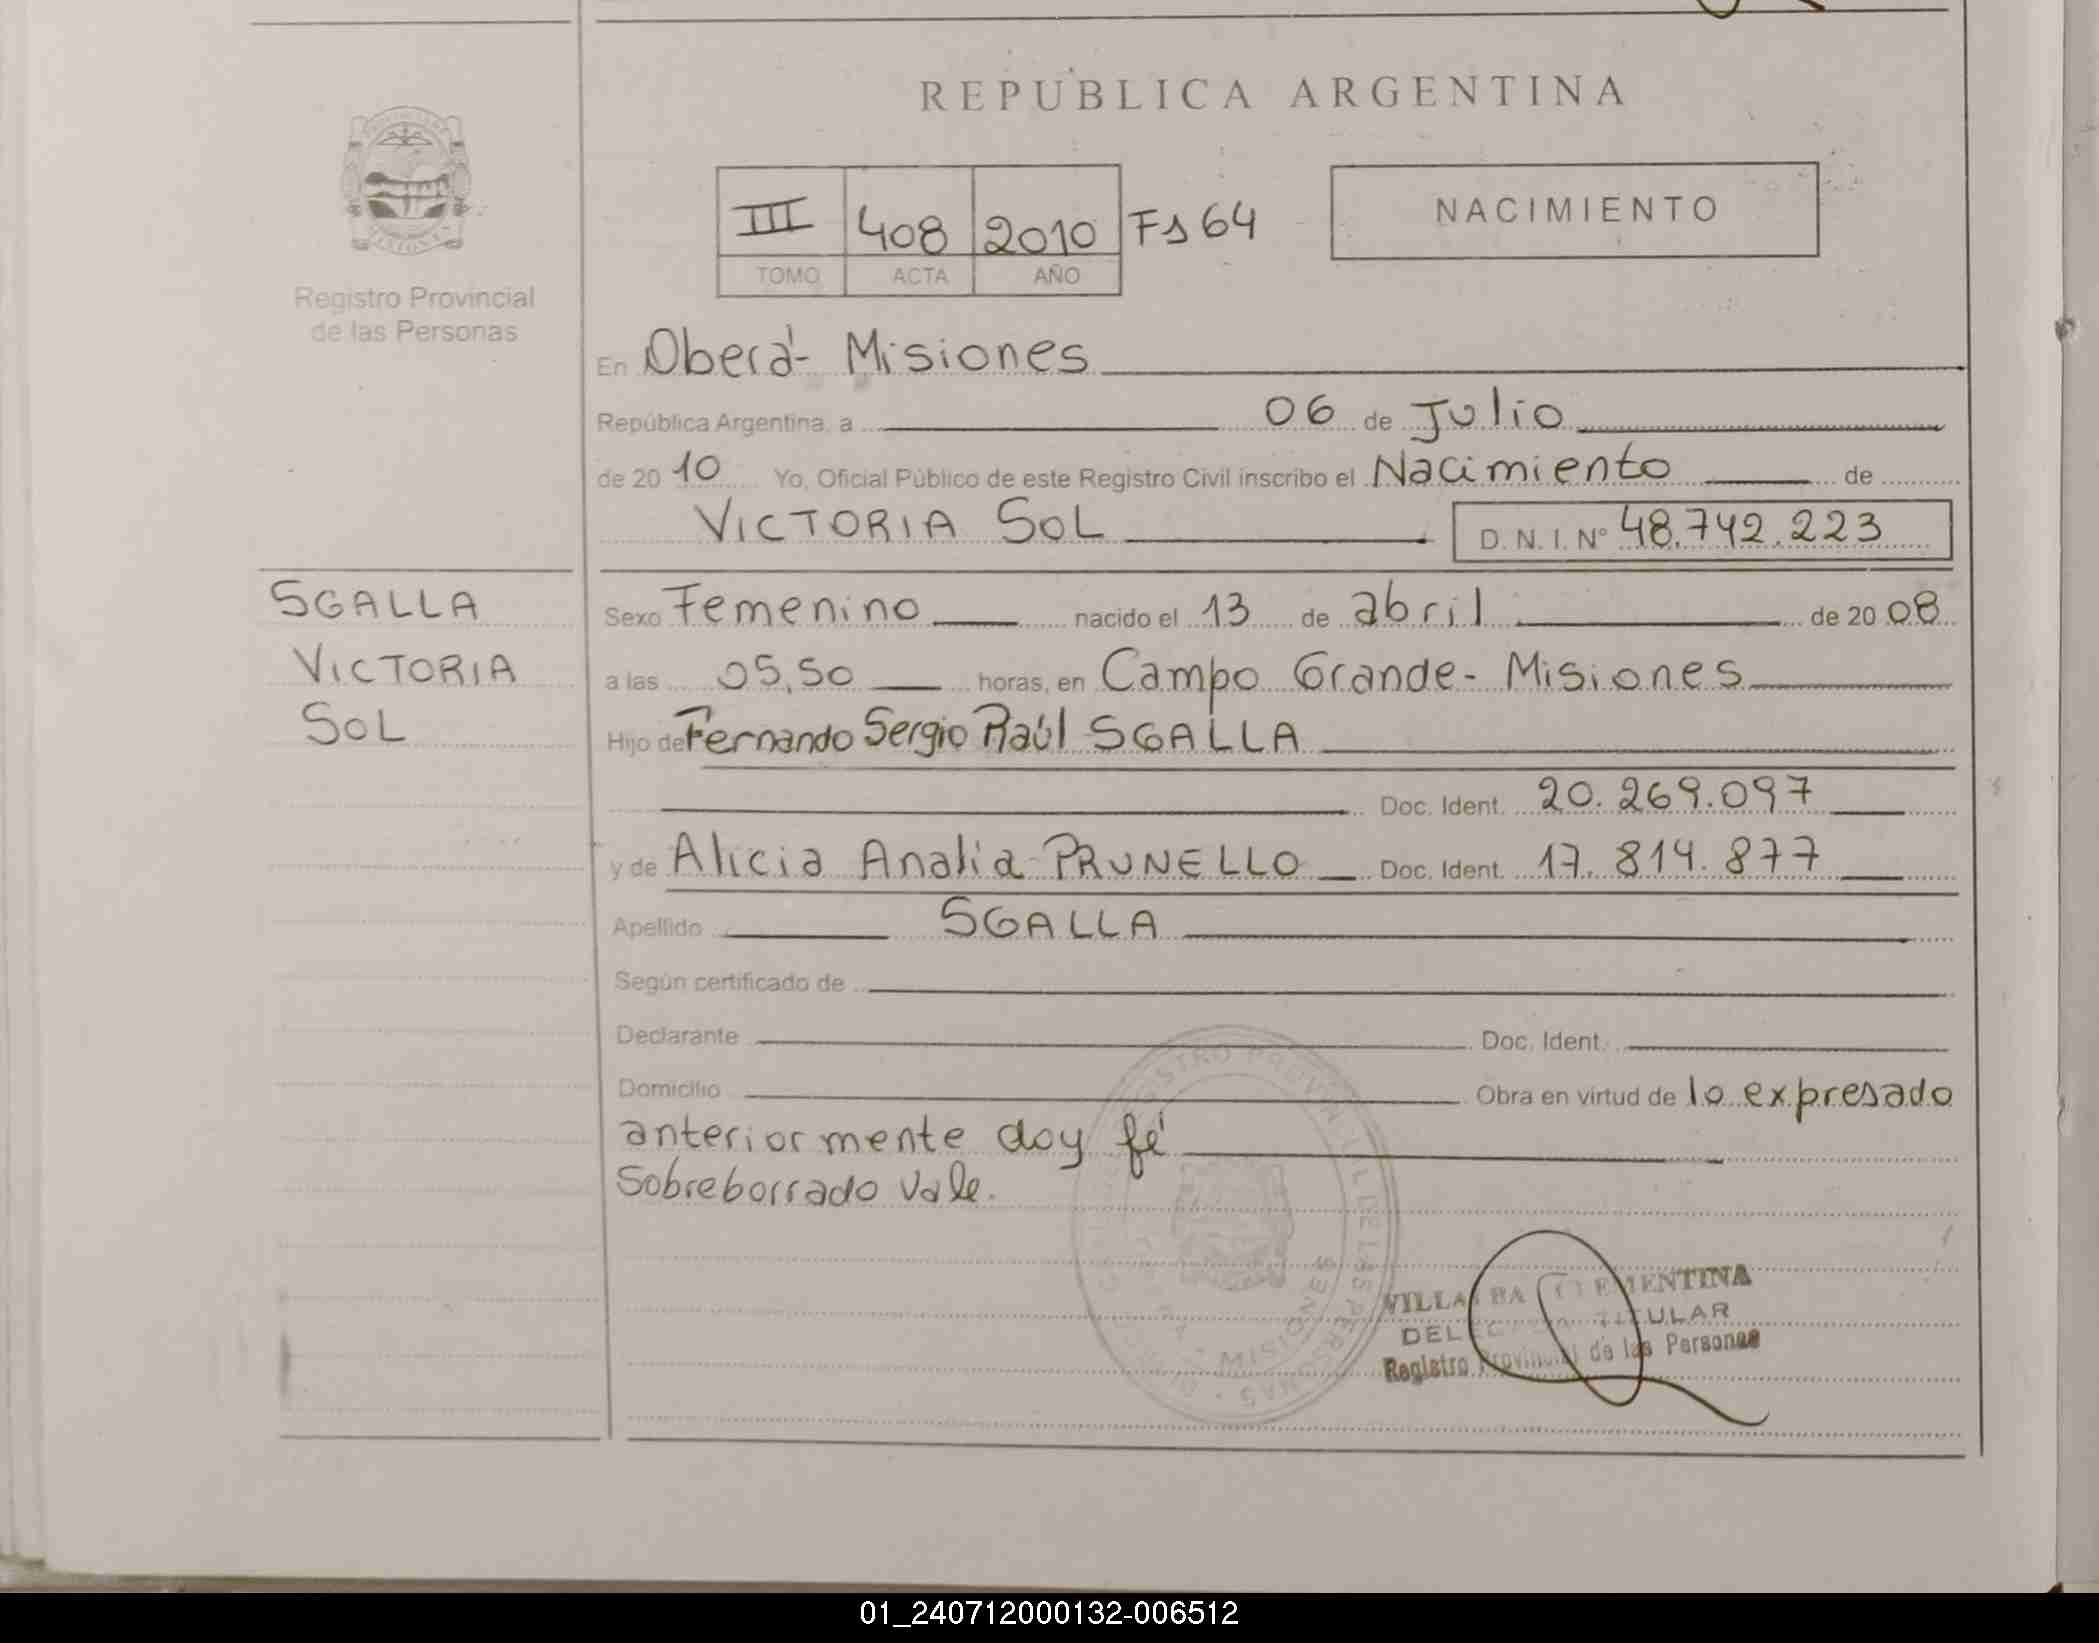 REPUBLICA ARGENTINA
III 408 2010 Fs 64
TOMO ACTA AÑO
NACIMIENTO
Registro Provincial
de las Personas
En Oberá- Misiones
República Argentina, a 06 de Julio
de 20 10 Yo, Oficial Público de este Registro Civil inscribo el Nacimiento de
VICTORIA SOL D.N.I. Nº 48.742.223
SGALLA
VICTORIA
SOL
Sexo Femenino nacido el 13 de abril de 20 08
a las 05,50 horas, en Campo Grande- Misiones
Hijo de Fernando Sergio Raúl SGALLA
Doc. Ident. 20.269.097
y de Alicia Analia PRUNELLO Doc. Ident. 17.814.877
Apellido SGALLA
Según certificado de
Declarante Doc. Ident.
Domicilio Obra en virtud de lo expresado
anteriormente doy fé
Sobreborrado vale.
VILLALBA CLEMENTINA
TITULAR
Registro Provincial de las Personas
01_240712000132-006512